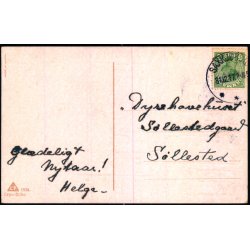 Dyrehavehuset
Søllestedgaard
Søllested
Glædeligt
Nytaar!
Helge.